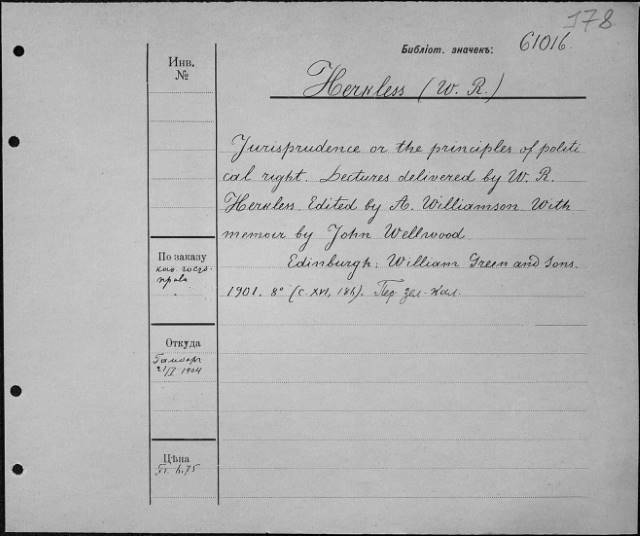 178
Библіот. значекъ: 61016
Инв.
№
Herkless (W. R.)
Jurisprudence or the principles of politi
cal right. Lectures delivered by W. R.
Herkless. Edited by A. Williamson With
memoir by John Wellwood.
Edinburgh: William Green and Sons.
1901. 8° (c. XVI, 186). Пер. зел. кол.
По заказу
каб. госуд.
права
Откуда
21/I 1904
Цѣна